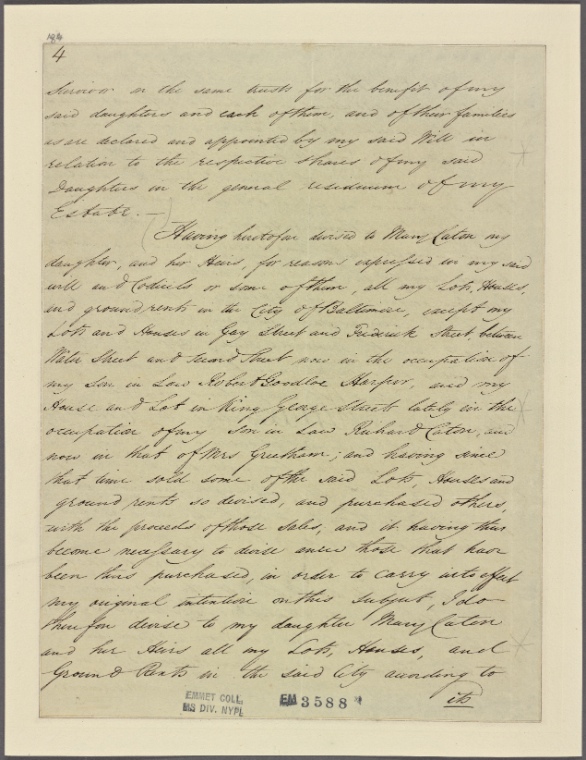 184
4
Survivor in the same trusts for the benefit of my
said daughters and each of them, and of their families
as are declared and appointed by my said Will in
relation to the respective shares of my said
Daughters in the general residuum of my
Estate. —
Having heretofore devised to Mary Caton my
daughter, and her Heirs, for reasons expressed in my said
will and Codicils or some of them, all my Lots, Houses,
and ground rents in the City of Baltimore, except my
Lots and Houses in Gay Street and Frederick Street, between
Water Street and Second Street now in the occupation of
my Son in Law Robert Goodloe Harper, and my
House and Lot in King George Street lately in the
occupation of my Son in Law Richard Caton, and
now in that of Mrs Greetham; and having since
that time sold some of the said Lots, Houses and
ground rents so devised, and purchased others,
with the proceeds of those Sales, and it having thus
become necessary to devise anew those that have
been thus purchased, in order to carry into effect
my original intention on this subject, I do
therefore devise to my daughter Mary Caton
and her Heirs all my Lots, Houses, and
Ground Rents in the said City according to
its
EMMET COLL.
MS DIV. NYPL
EM 3588